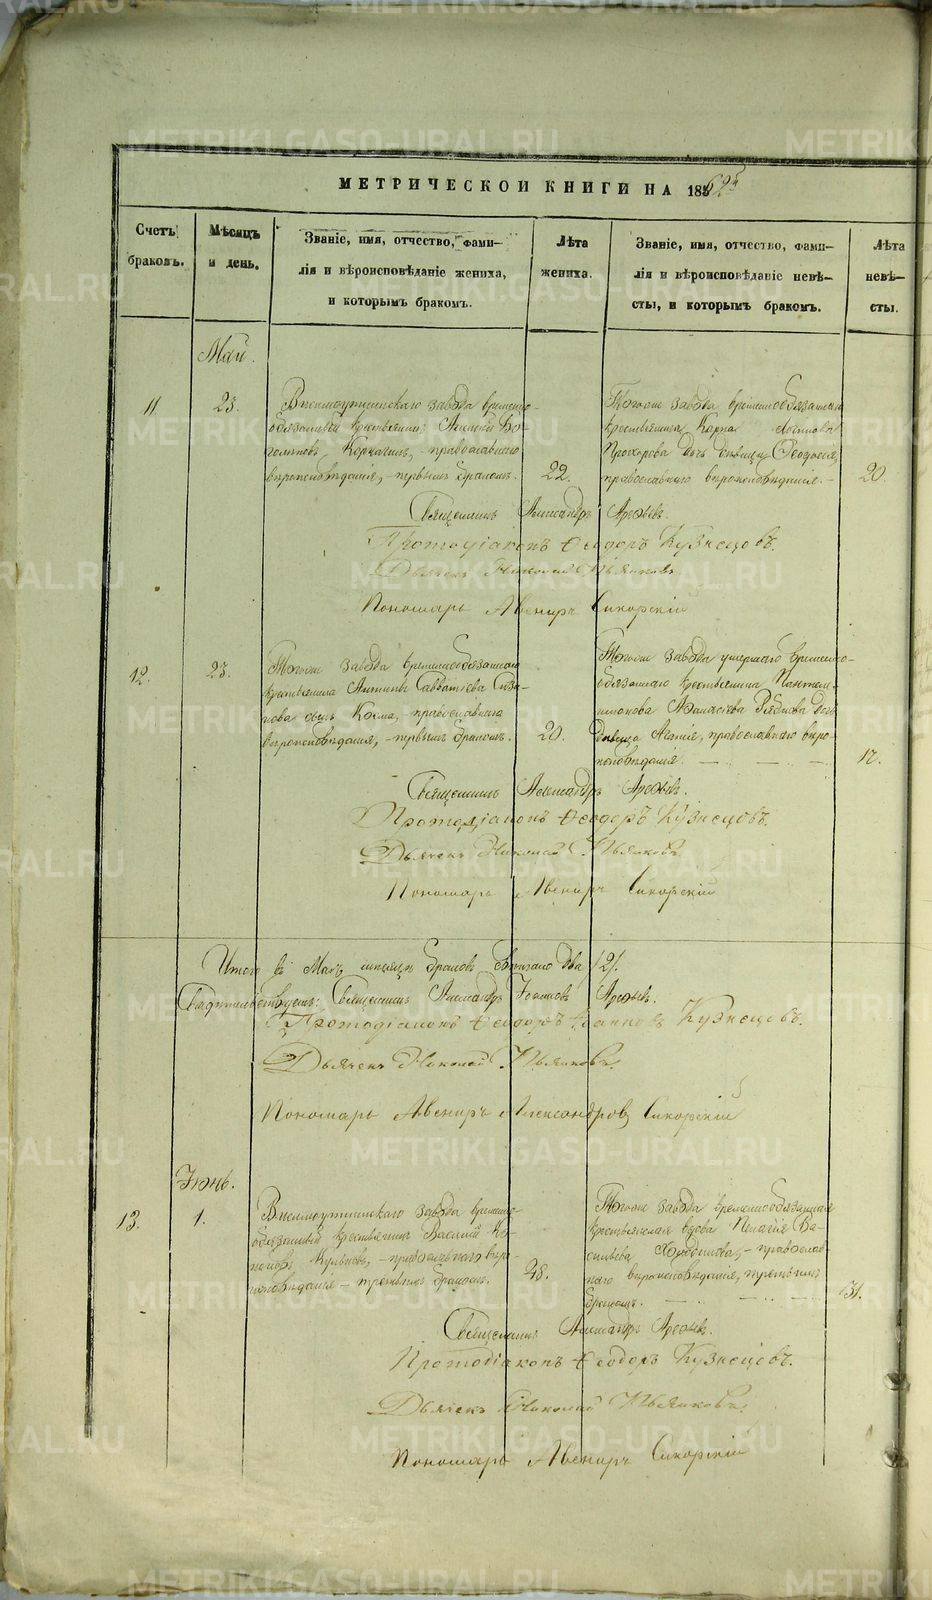 МЕТРИЧЕСКОЙ КНИГИ НА 1862й
Счетъ браковъ.
Мѣсяцъ и день.
Званіе, имя, отчество, фами-
лія и вѣроисповѣданіе жениха,
и которымъ бракомъ.
Лѣта жениха.
Званіе, имя, отчество, фами-
лія и вѣроисповѣданіе невѣ-
сты, и которымъ бракомъ.
Лѣта невѣ-
сты.
Май.
11
23.
завода временно-
обязанный крестьянинъ
Корчагинъ, православнаго
вѣроисповѣданія, первымъ бракомъ.
22.
Тогоже завода временнообязаннаго
крестьянина
Прохорова дочь девица Феодосія,
православнаго вѣроисповѣданія.
20.
Священникъ Александръ Арефьевъ.
Протодіаконъ Ѳеодоръ Кузнецовъ.
Дьячекъ Николай
Пономарь Авениръ Сикорскій
12.
23.
Тогоже завода временнообязаннаго
крестьянина Савватѣева
сынъ Косма, православнаго
вѣроисповѣданія, первымъ бракомъ.
20.
Тогоже завода умершаго временно-
обязаннаго крестьянина Пантелей-
монова Афанасьева дочь
девица Агапія, православнаго вѣро-
исповѣданія.
17.
Священникъ Александръ Арефьевъ.
Протодіаконъ Ѳеодоръ Кузнецовъ.
Дьячекъ Николай
Пономарь Авениръ Сикорскій
Итого въ Маѣ мѣсяцѣ браковъ вѣнчано два /2/.
Свидѣтельствуемъ: Священникъ Александръ Іоанновъ Арефьевъ.
Протодіаконъ Ѳеодоръ Іоанновъ Кузнецовъ.
Дьячекъ Николай
Пономарь Авениръ Александровъ Сикорскій
Іюнь.
13.
1.
завода временно-
обязанный крестьянинъ Василій
православнаго вѣро-
исповѣданія третьимъ бракомъ.
48.
Тогоже завода временнообязанная
крестьянская вдова Пелагія Ва-
сильева православ-
наго вѣроисповѣданія, третьимъ
бракомъ.
31.
Священникъ Александръ Арефьевъ.
Протодіаконъ Ѳеодоръ Кузнецовъ.
Дьячекъ Николай
Пономарь Авениръ Сикорскій
METRIKI.GASO-URAL.RU